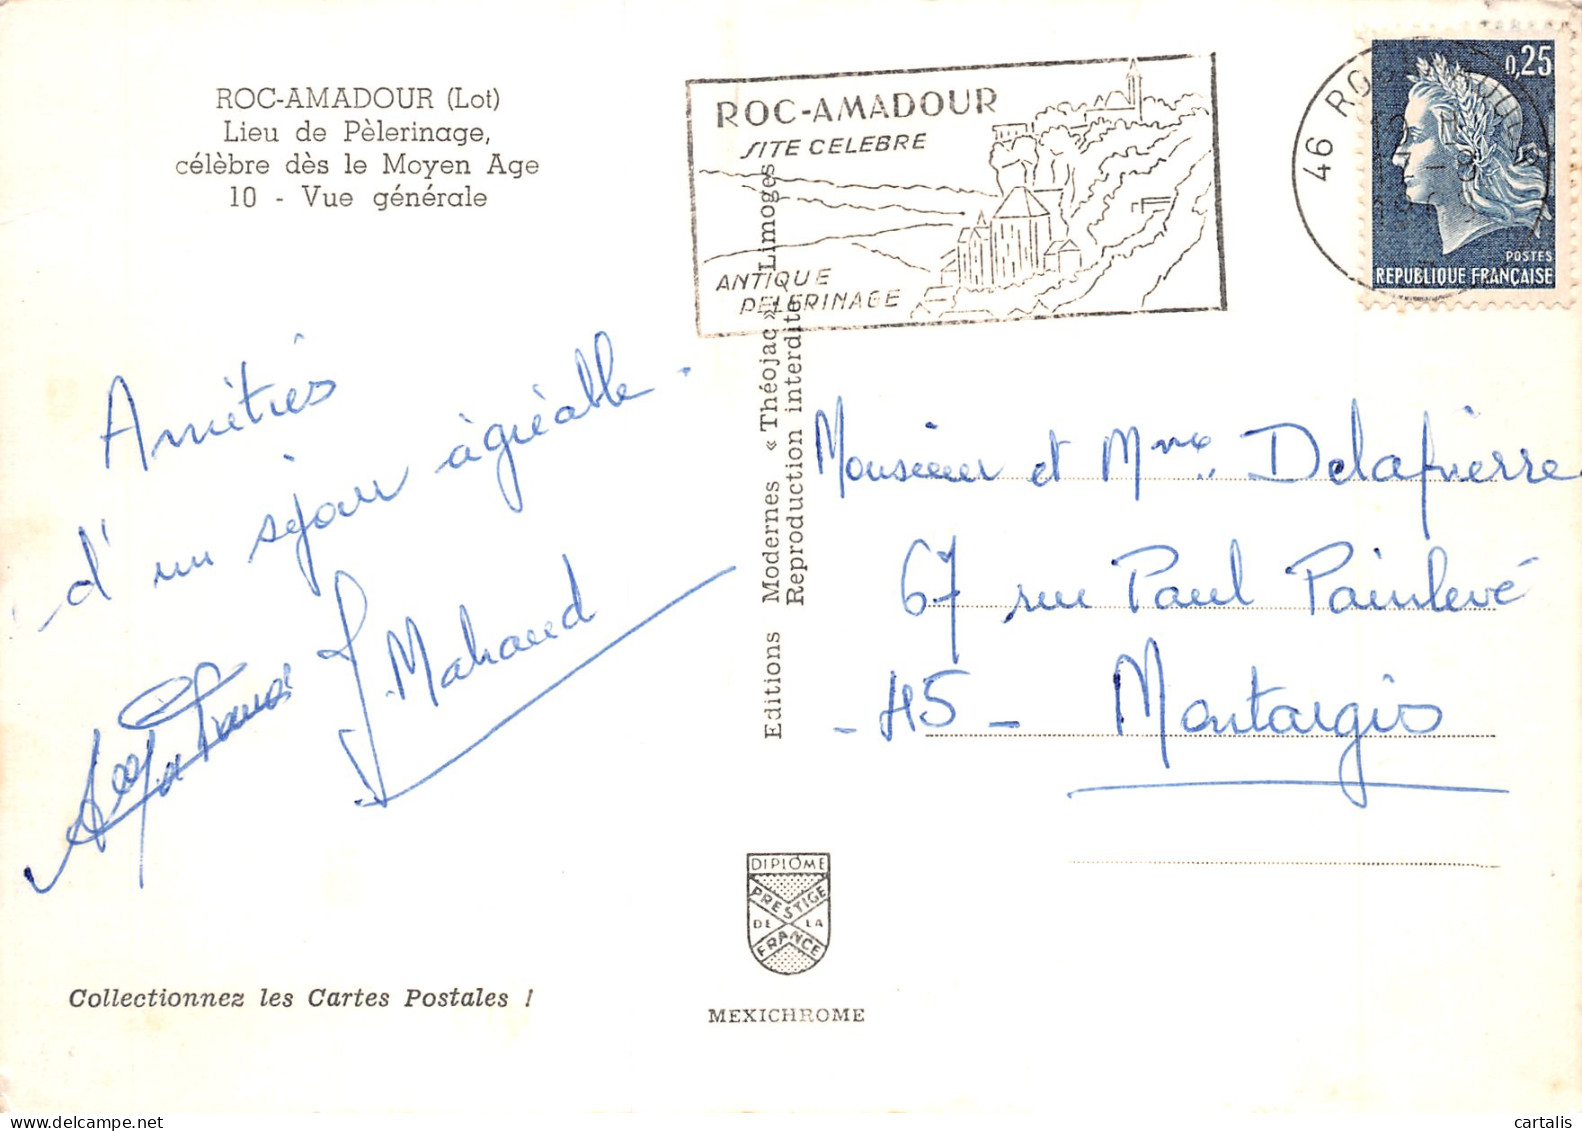 ROC-AMADOUR (Lot)
Lieu de Pèlerinage,
célèbre dès le Moyen Age
10 - Vue générale
ROC-AMADOUR
SITE CELEBRE
ANTIQUE
PELERINAGE
46 RO
0,25
POSTES
REPUBLIQUE FRANÇAISE
Amitiés
d'un séjour agréable.
J. Mahaud
Editions Modernes « Théojac » Limoges
Reproduction interdite
Monsieur et Mme Delapierre
67 rue Paul Painlevé
- 45 - Montargis
DIPLÔME
PRESTIGE
DE LA
FRANCE
MEXICHROME
Collectionnez les Cartes Postales !
cartalis